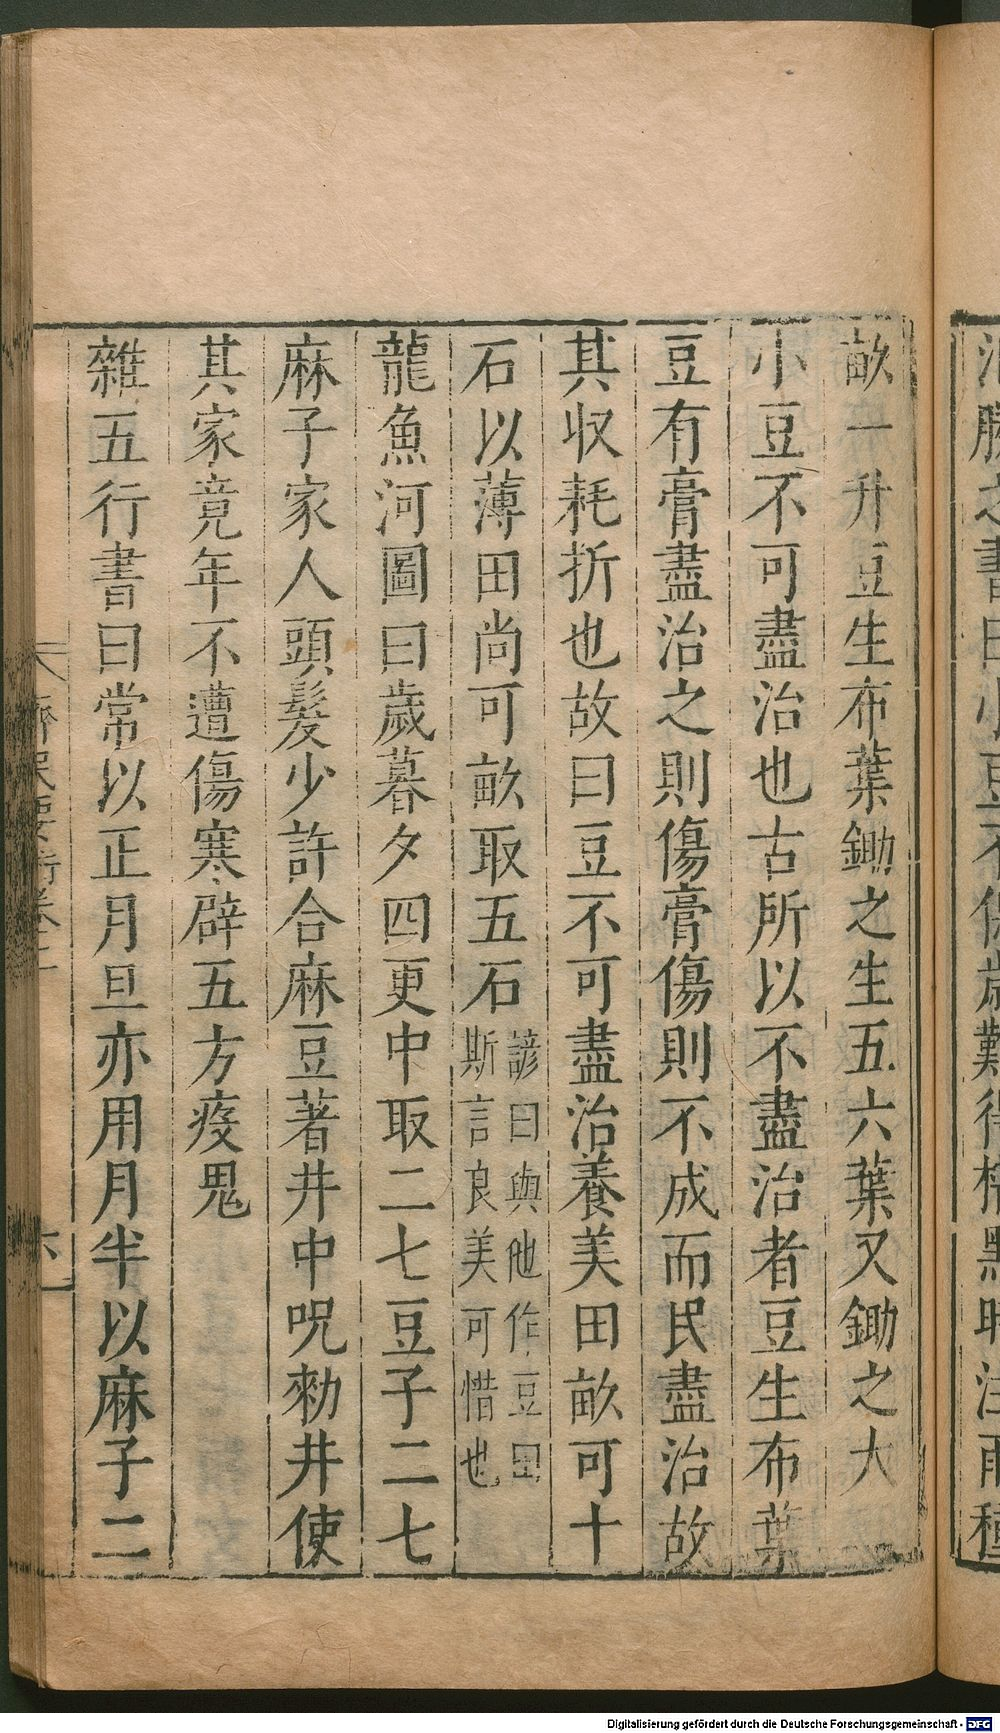 氾勝之書曰小豆不保歲難得椹黑時注雨種
畝一升豆生布葉鋤之生五六葉又鋤之大
小豆不可盡治也古所以不盡治者豆生布葉
豆有膏盡治之則傷膏傷則不成而民盡治故
其收耗折也故曰豆不可盡治養美田畝可十
石以薄田尚可畝取五石諺曰與他作豆田
斯言良美可惜也
龍魚河圖曰歲暮夕四更中取二七豆子二七
麻子家人頭髮少許合麻豆著井中呪勑井使
其家竟年不遭傷寒辟五方疫鬼
雜五行書曰常以正月旦亦用月半以麻子二
齊民要術卷二
六
Digitalisierung gefördert durch die Deutsche Forschungsgemeinschaft - DFG